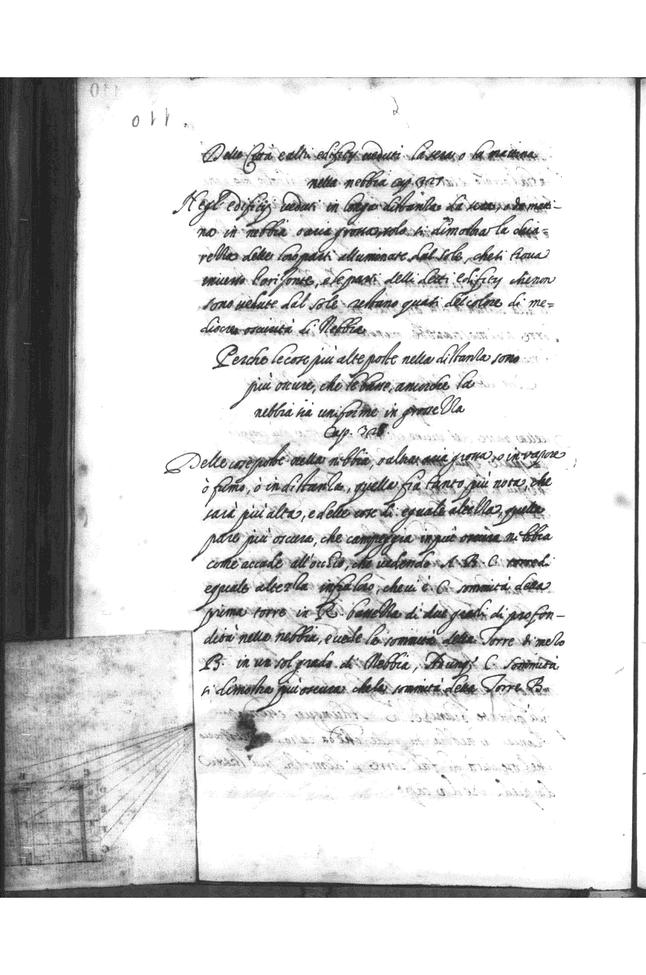 110
Delle Città e altri edifitij veduti la sera, o la mattina
nella nebbia cap. 327
Negl'edifitij veduti in longa distanza da sera, o da matti-
no in nebbia o aria grossa, solo si dimostra la chia=
rezza delle loro parti alluminate dal sole, che si trova
inverso l'orizonte, e le parti delli detti edifitij che non
sono vedute dal sole restano quasi del colore di me=
diocre oscurità di Nebbia
Perche le cose più alte poste nella distanza sono
più oscure, che le basse, ancorche la
nebbia sia uniforme in grossezza
Cap. 328
Delle cose poste nella nebbia, o altra aria grossa, o in vapore
ò fumo, ò in distanza, quella fia tanto più nota, che
sarà più alta, e delle cose di eguale altezza, quella
pare più oscura, che campeggia in più oscura nebbia
come accade all'occhio, che vedendo A B C torre di
eguale altezza infra loro, che vi è C sommità della
prima torre in R bassezza di due gradi di profon-
dità nella nebbia, e vede la sommità della Torre di mezo
B in un sol grado di Nebbia, Adunq; C sommità
si dimostra più oscura che la sommità della Torre B